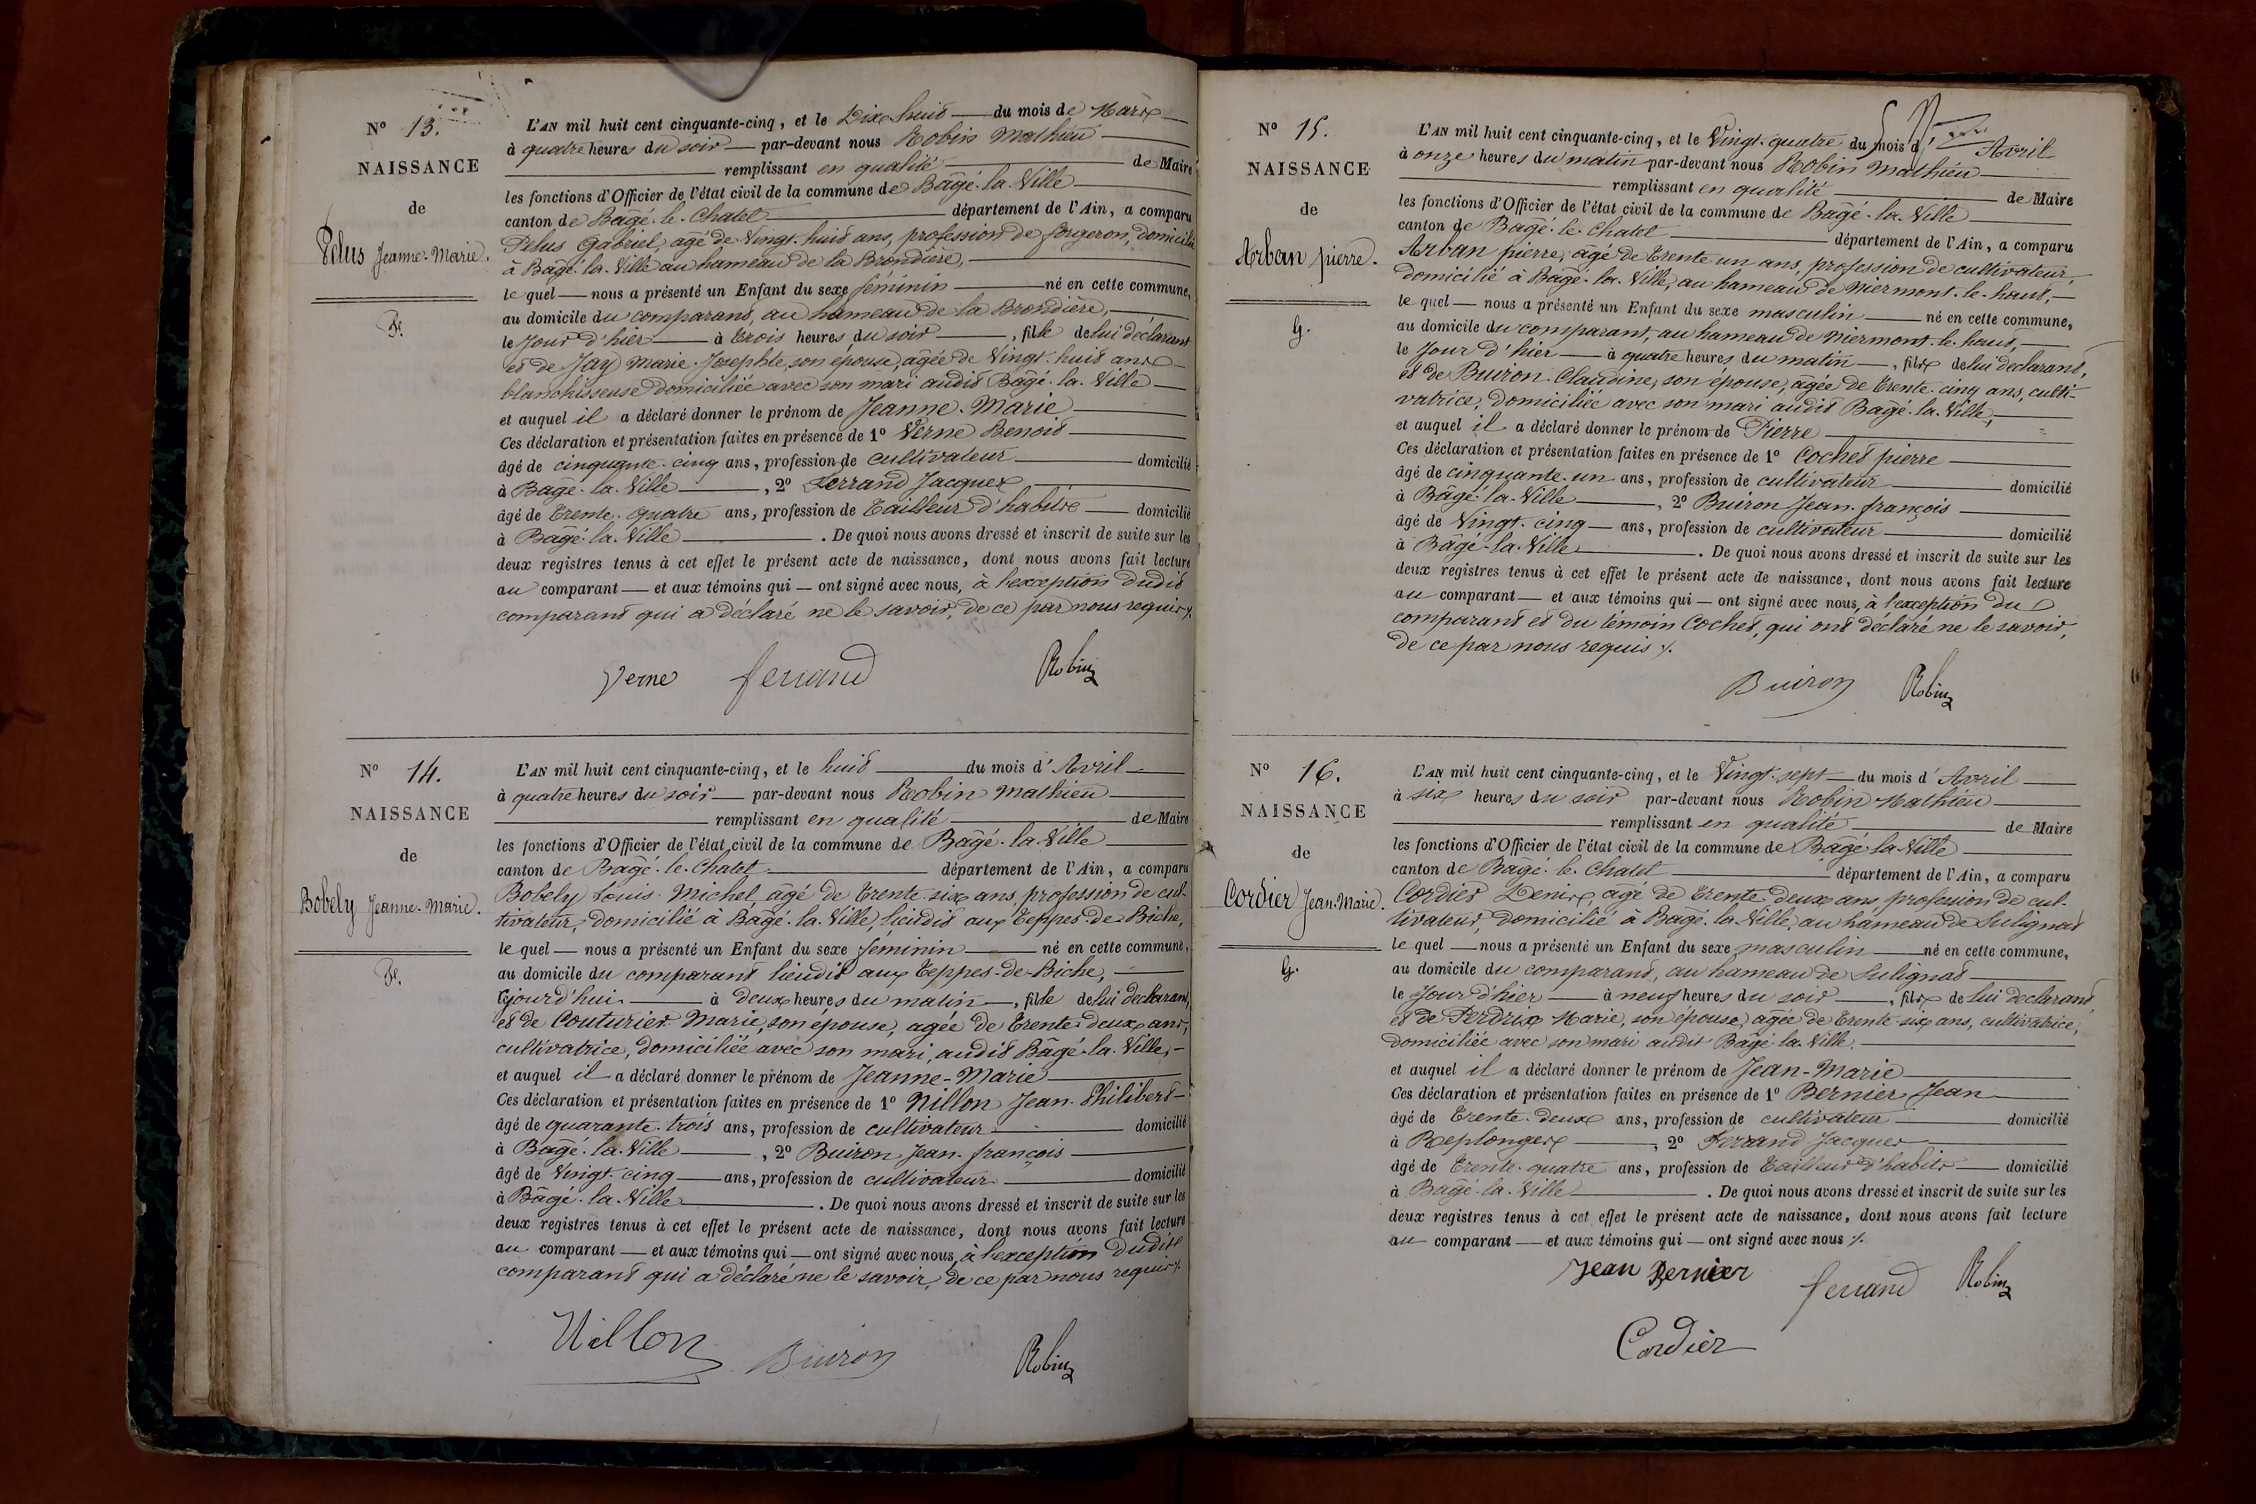 N° 13.
NAISSANCE
de
Pelus Jeanne-Marie.
F.
L'AN mil huit cent cinquante-cinq, et le Dix huit du mois de Mars
à quatre heures du soir par-devant nous Robin Mathieu
remplissant en qualité de Maire
les fonctions d'Officier de l'état civil de la commune de Bâgé-la-Ville
canton de Bâgé-le-Chatel département de l'Ain, a comparu
Pelus Gabriel, agé de Vingt-huit ans, profession de forgeron, domicilié
à Bâgé-la-Ville au hameau de la Brondière,
lequel nous a présenté un Enfant du sexe féminin né en cette commune,
au domicile du comparant, au hameau de la Brondière,
le Jour d'hier à trois heures du soir, fille de lui déclarant
et de Jay Marie-Josephte, son épouse, agée de Vingt-huit ans
blanchisseuse domiciliée avec son mari audit Bâgé-la-Ville
et auquel il a déclaré donner le prénom de Jeanne-Marie
Ces déclaration et présentation faites en présence de 1° Verne Benoit
âgé de cinquante-cinq ans, profession de cultivateur domicilié
à Bâgé-la-Ville, 2° Ferrand Jacques
âgé de trente-quatre ans, profession de tailleur d'habits domicilié
à Bâgé-la-Ville. De quoi nous avons dressé et inscrit de suite sur les
deux registres tenus à cet effet le présent acte de naissance, dont nous avons fait lecture
au comparant et aux témoins qui ont signé avec nous, à l'exception dudit
comparant qui a déclaré ne le savoir, de ce par nous requis.
Verne ferrand Robin
N° 14.
NAISSANCE
de
Bobely Jeanne-Marie.
F.
L'AN mil huit cent cinquante-cinq, et le huit du mois d'Avril
à quatre heures du soir par-devant nous Robin Mathieu
remplissant en qualité de Maire
les fonctions d'Officier de l'état civil de la commune de Bâgé-la-Ville
canton de Bâgé-le-Chatel département de l'Ain, a comparu
Bobely Louis-Michel, âgé de trente-six ans, profession de cul-
tivateur, domicilié à Bâgé-la-Ville, lieudit aux Teppes-de-Biche,
lequel nous a présenté un Enfant du sexe féminin né en cette commune,
au domicile du comparant lieudit aux Teppes-de-Biche,
cejourd'hui à deux heures du matin, fille de lui déclarant,
et de Couturier Marie, son épouse, agée de trente-deux ans,
cultivatrice, domiciliée avec son mari, audit Bâgé-la-Ville,
et auquel il a déclaré donner le prénom de Jeanne-Marie
Ces déclaration et présentation faites en présence de 1° Nillon Jean-Philibert
âgé de quarante-trois ans, profession de cultivateur domicilié
à Bâgé-la-Ville, 2° Buiron Jean-françois
âgé de Vingt-cinq ans, profession de cultivateur domicilié
à Bâgé-la-Ville. De quoi nous avons dressé et inscrit de suite sur les
deux registres tenus à cet effet le présent acte de naissance, dont nous avons fait lecture
au comparant et aux témoins qui ont signé avec nous, à l'exception dudit
comparant qui a déclaré ne le savoir, de ce par nous requis.
Nillon Buiron Robin
N° 15.
NAISSANCE
de
Arban pierre.
G.
L'AN mil huit cent cinquante-cinq, et le Vingt-quatre du mois d'Avril
à onze heures du matin par-devant nous Robin Mathieu
remplissant en qualité de Maire
les fonctions d'Officier de l'état civil de la commune de Bâgé-la-Ville
canton de Bâgé-le-Chatel département de l'Ain, a comparu
Arban pierre, âgé de trente un ans, profession de cultivateur,
domicilié à Bâgé-la-Ville, au hameau de Niermont-le-haut,
lequel nous a présenté un Enfant du sexe masculin né en cette commune,
au domicile du comparant, au hameau de Niermont-le-haut,
le Jour d'hier à quatre heures du matin, fils de lui déclarant,
et de Buiron Claudine, son épouse, âgée de trente-cinq ans, culti-
vatrice, domiciliée avec son mari audit Bâgé-la-Ville,
et auquel il a déclaré donner le prénom de Pierre
Ces déclaration et présentation faites en présence de 1° Cochet pierre
âgé de cinquante-un ans, profession de cultivateur domicilié
à Bâgé-la-Ville, 2° Buiron Jean-françois
âgé de Vingt-cinq ans, profession de cultivateur domicilié
à Bâgé-la-Ville. De quoi nous avons dressé et inscrit de suite sur les
deux registres tenus à cet effet le présent acte de naissance, dont nous avons fait lecture
au comparant et aux témoins qui ont signé avec nous, à l'exception du
comparant et du témoin Cochet, qui ont déclaré ne le savoir,
de ce par nous requis.
Buiron Robin
N° 16.
NAISSANCE
de
Cordier Jean-Marie.
G.
L'AN mil huit cent cinquante-cinq, et le Vingt-sept du mois d'Avril
à six heures du soir par-devant nous Robin Mathieu
remplissant en qualité de Maire
les fonctions d'Officier de l'état civil de la commune de Bâgé-la-Ville
canton de Bâgé-le-Chatel département de l'Ain, a comparu
Cordier Denis, agé de trente-deux ans, profession de cul-
tivateur, domicilié à Bâgé-la-Ville, au hameau de Sulignat
lequel nous a présenté un Enfant du sexe masculin né en cette commune,
au domicile du comparant, au hameau de Sulignat
le Jour d'hier à neuf heures du soir, fils de lui déclarant
et de Perdrix Marie, son épouse, agée de trente-six ans, cultivatrice,
domiciliée avec son mari audit Bâgé-la-Ville.
et auquel il a déclaré donner le prénom de Jean-Marie
Ces déclaration et présentation faites en présence de 1° Bernier Jean
âgé de trente-deux ans, profession de cultivateur domicilié
à Replonges, 2° Ferrand Jacques
âgé de trente-quatre ans, profession de tailleur d'habits domicilié
à Bâgé-la-Ville. De quoi nous avons dressé et inscrit de suite sur les
deux registres tenus à cet effet le présent acte de naissance, dont nous avons fait lecture
au comparant et aux témoins qui ont signé avec nous.
Jean Bernier ferrand Robin
Cordier